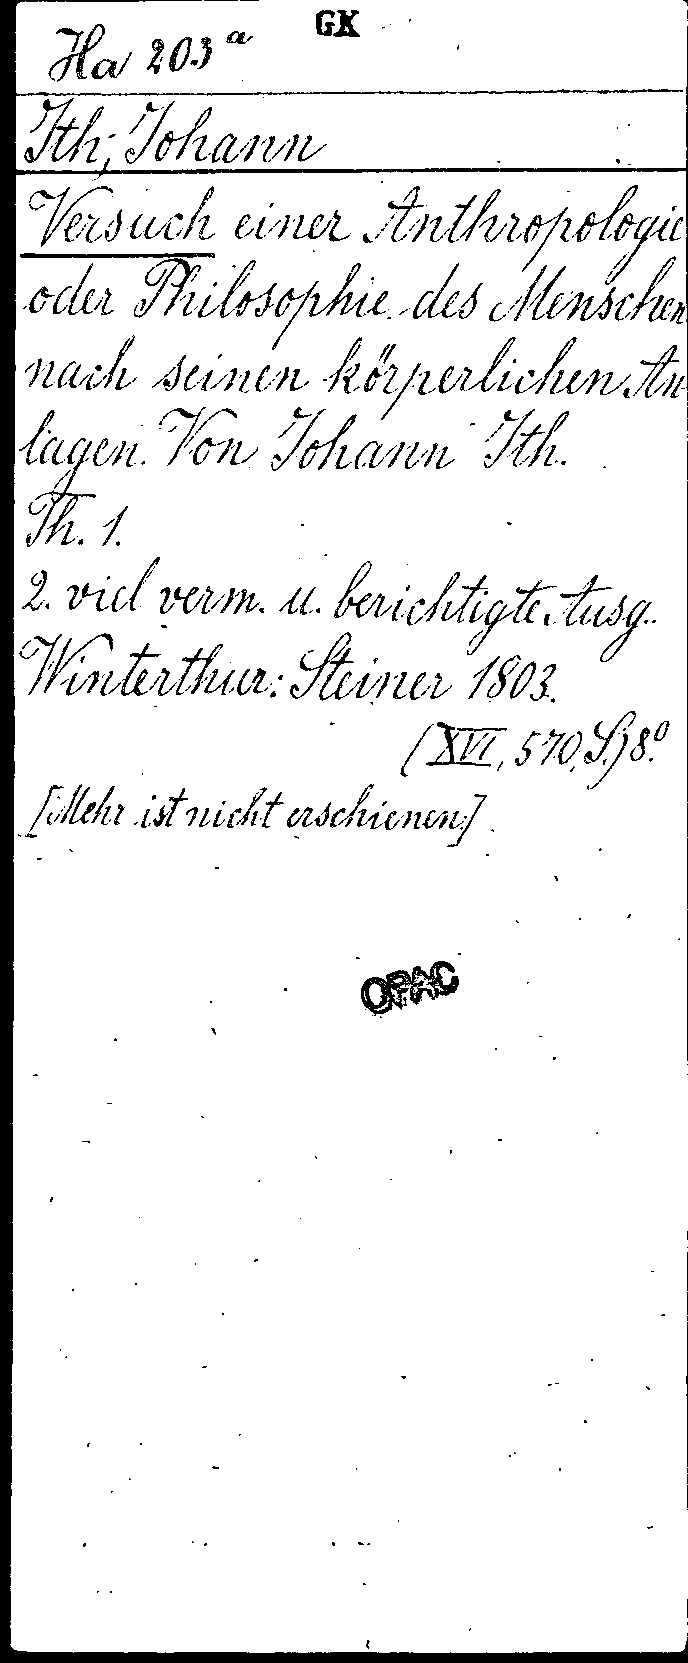 GK
Ha 203 a
Ith, Johann
Versuch einer Anthropologie
oder Philosophie des Menschen
nach seinen körperlichen An-
lagen. Von Johann Ith.
Th. 1.
2. viel verm. u. berichtigte Ausg.
Winterthur: Steiner 1803.
(XVI, 570, S.) 8.º
[Mehr ist nicht erschienen.]
OPAC